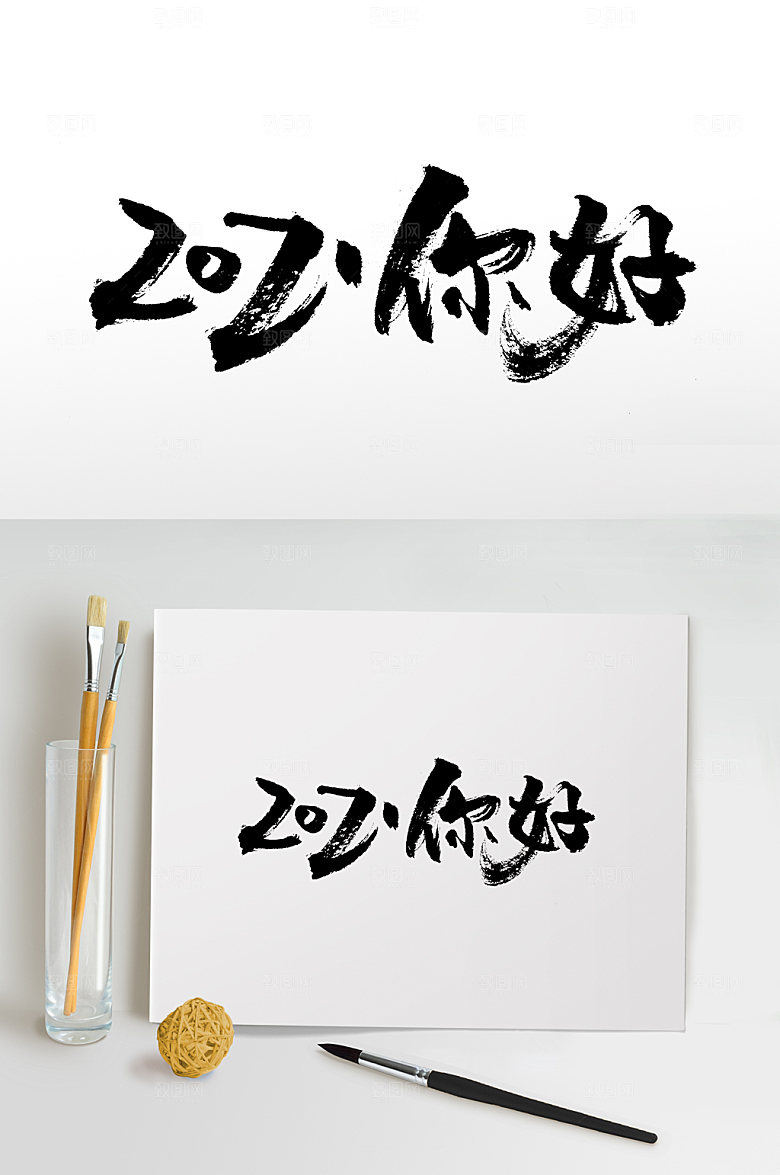 2021你好
2021你好